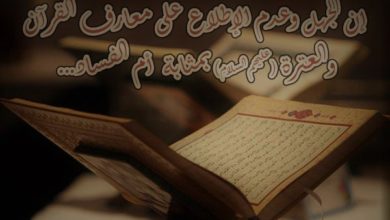 إن الجهل وعدم الإطلاع على معارف القرآن
والعترة (عليهم السلام) بمثابة أم الفساد...